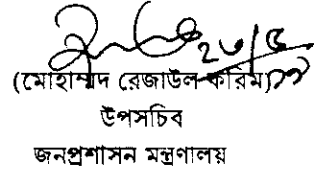 ২৬/৫
(মোহাম্মদ রেজাউল করিম)
উপসচিব
জনপ্রশাসন মন্ত্রণালয়